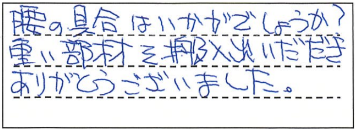 腰の具合はいかがでしょうか?
重い部材を搬入いただき
ありがとうございました。